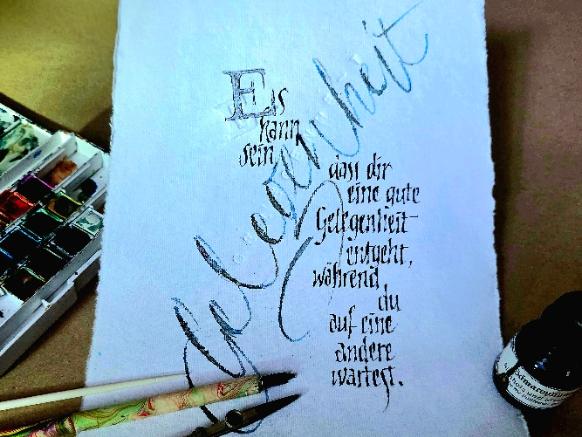 Gelegenheit
Es
kann
sein,
dass dir
eine gute
Gelegenheit
entgeht,
während
du
auf eine
andere
wartest.